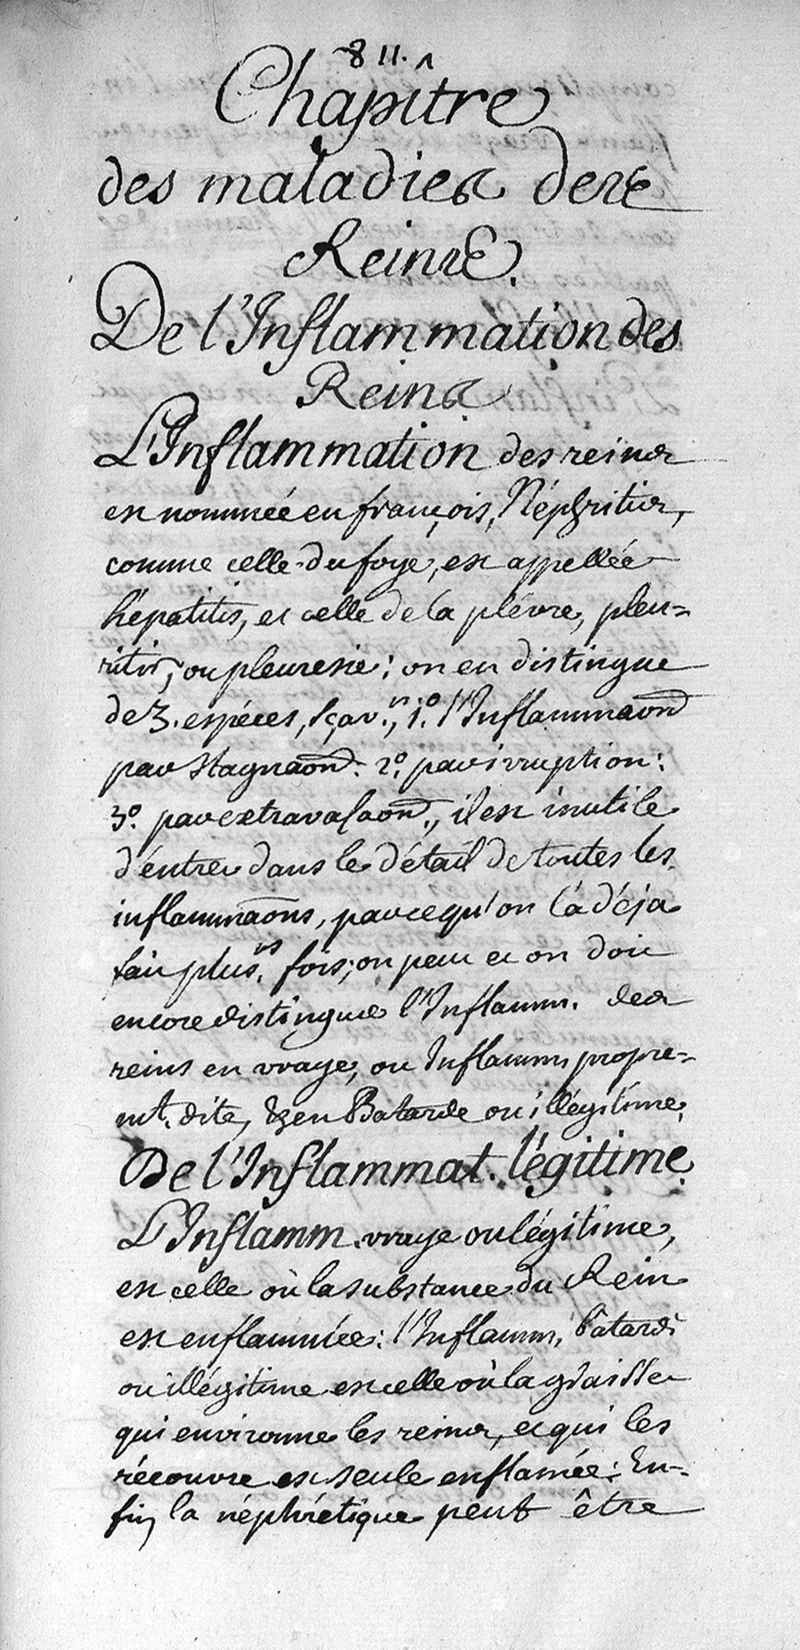 811.
Chapitre
des maladies des
Reins.
De l'Inflammation des
Reins
L'Inflammation des reins
est nommée en françois, Néphritis,
comme celle du foye, est appellée
hépatitis, et celle de la plévre, pleu=
ritis, ou pleuresie; on en distingue
de 3. espéces, sçav.n, 1.º l'Inflammaōnd
par stagnaōnd. 2.º par irruption:
3.º par extravasaōnd., il est inutile
d'entrer dans le détail de toutes les
inflammaōns, parcequ'on l'a déja
fait plus.rs fois; on peut et on doit
encore distinguer l'Inflamm. des
reins en vraye, ou Inflamm propre=
mt. dite, & en Batarde ou illégitime.
De l'Inflammat. légitime.
L'Inflamm. vraye ou légitime,
est celle où la substance du Rein
est enflammée: l'Inflamm, bâtarde
ou illégitime est celle où la graisse
qui environne les reins, et qui les
récouvre est seule enflamée: En=
fin la néphrétique peut être